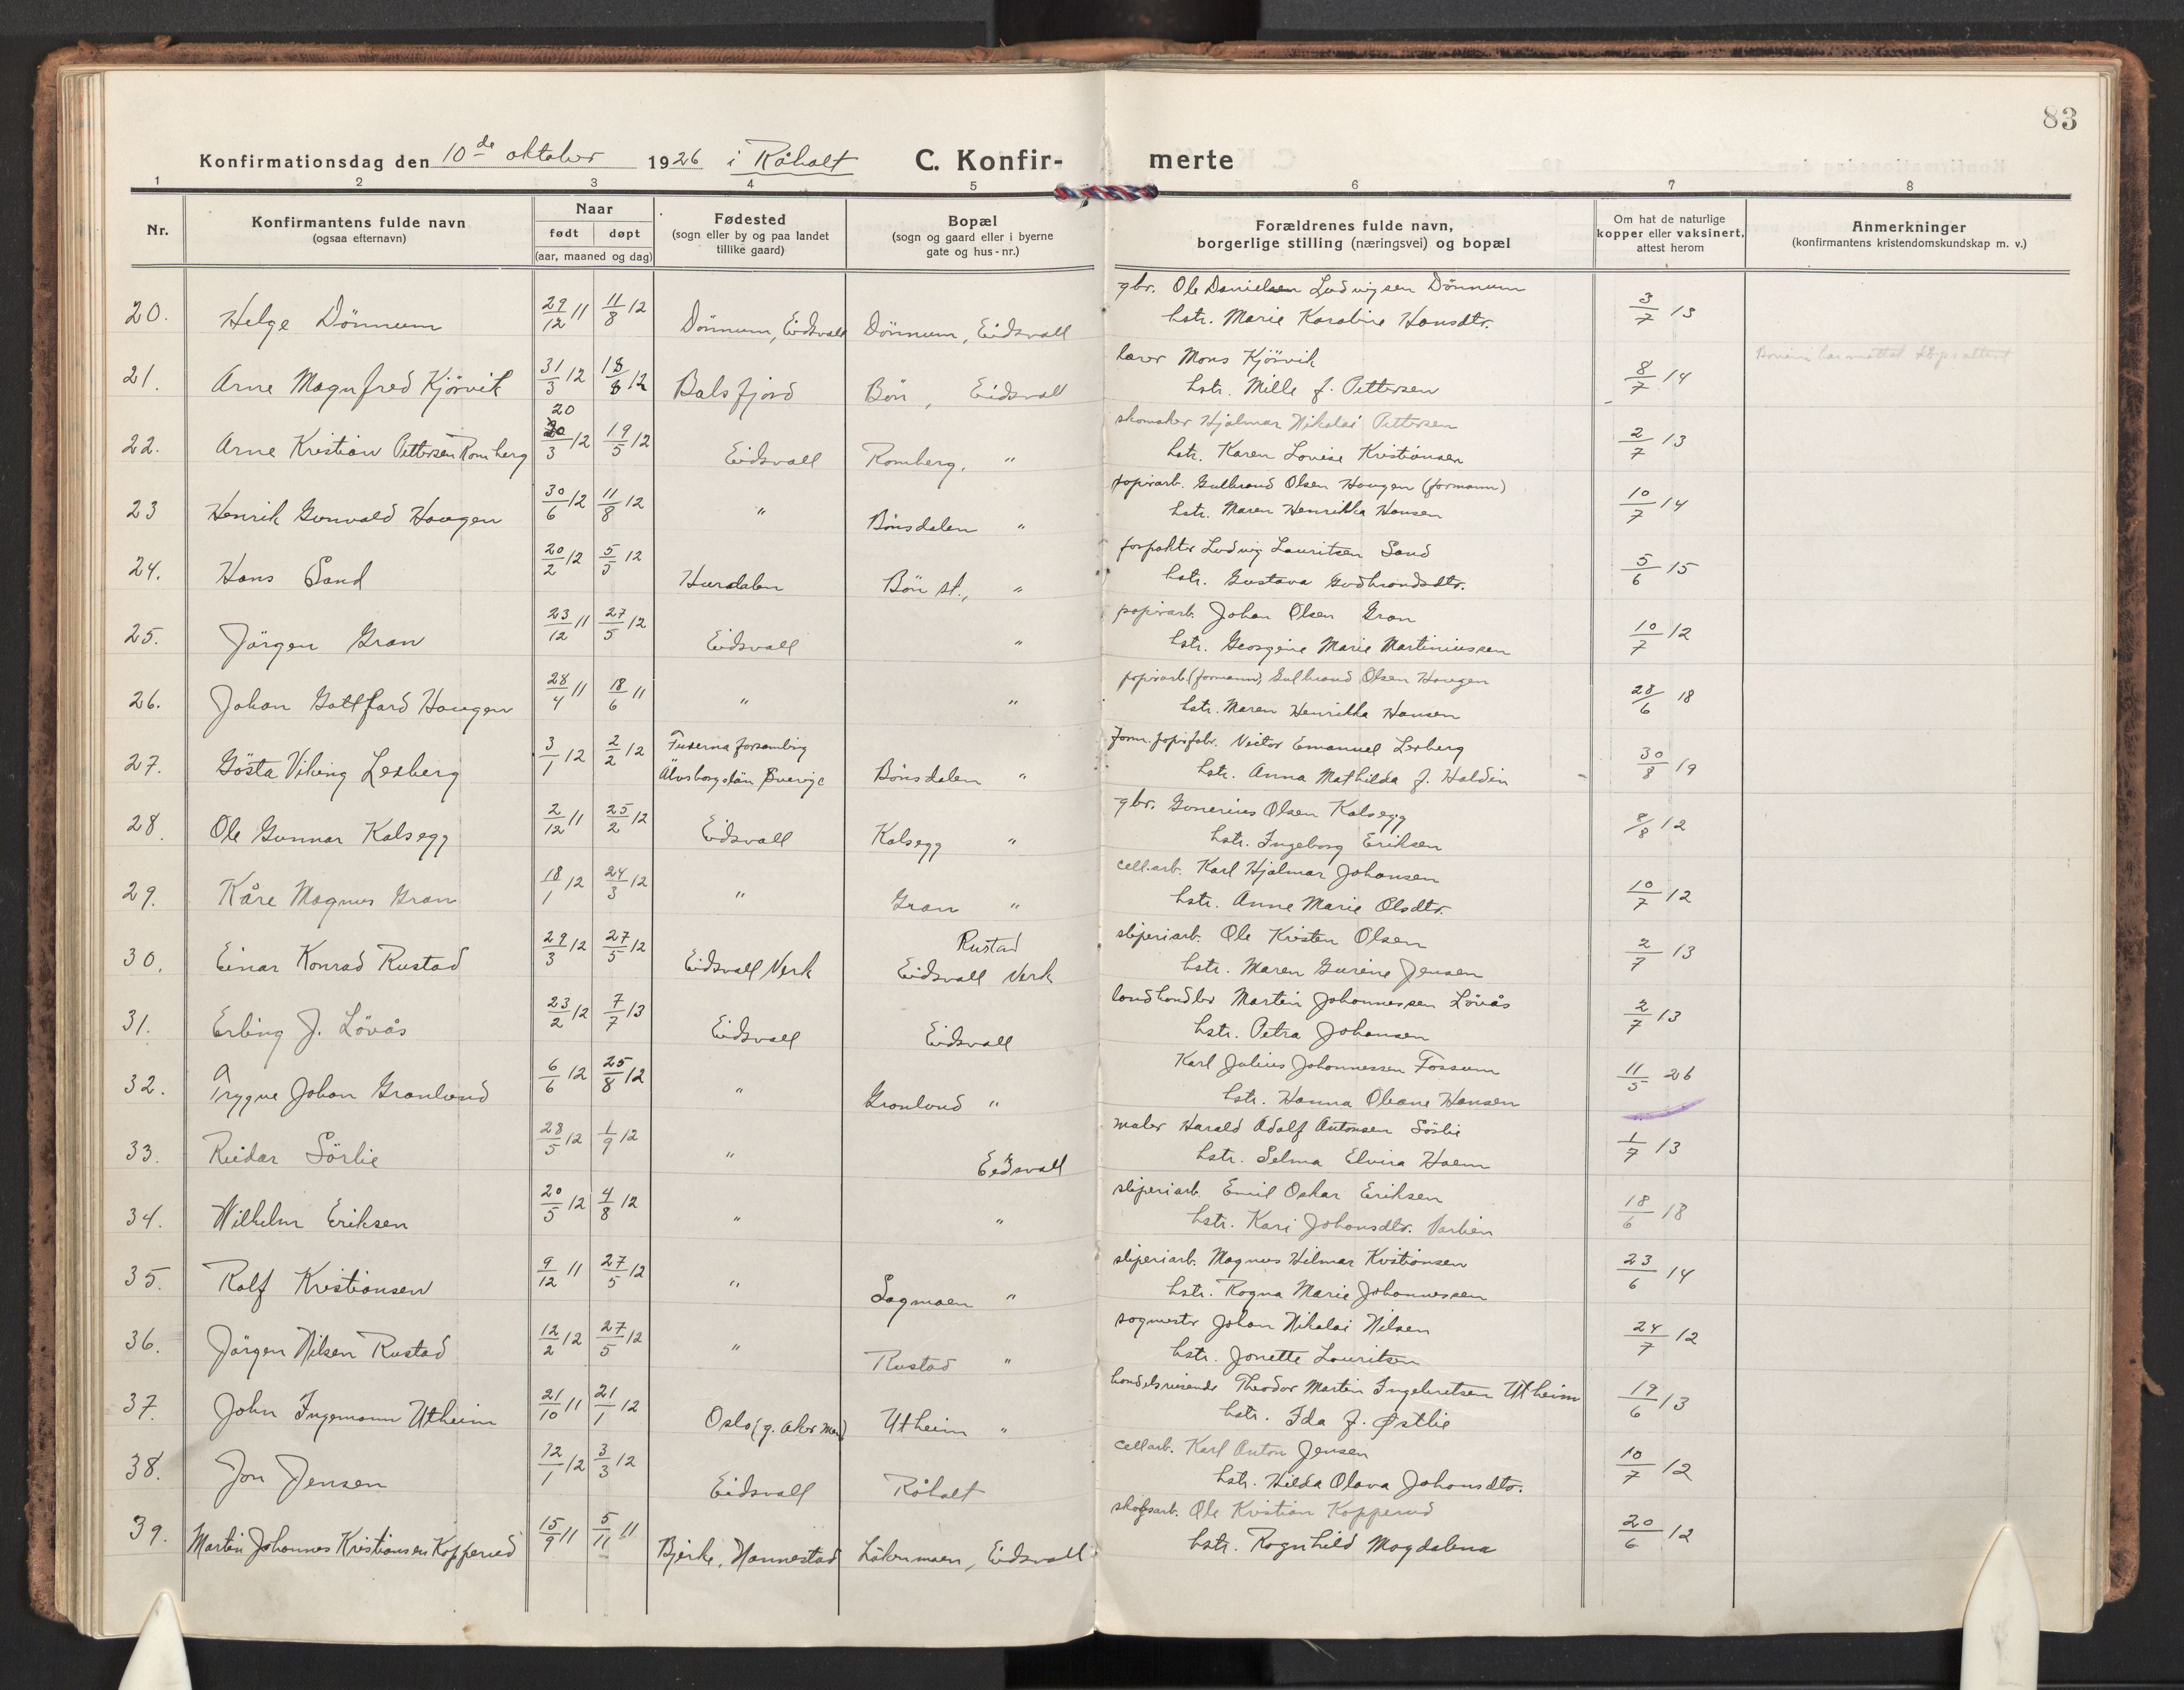 83
Konfirmationsdag den 10de oktober 1926 i Råholt C. Konfir- merte
1 2 3 4 5 6 7 8
Nr. Konfirmantens fulde navn (ogsaa efternavn) Naar født døpt (aar, maaned og dag) Fødested (sogn eller by og paa landet tillike gaard) Bopæl (sogn og gaard eller i byerne gate og hus-nr.) Forældrenes fulde navn, borgerlige stilling (næringsvei) og bopæl Om hat de naturlige kopper eller vaksinert, attest herom Anmerkninger (konfirmantens kristendomskundskap m. v.)
gbr. Ole Danielsen Ludvigsen Dönnum
20. Helge Dönnum 29/12 11 11/8 12 Dönnum, Eidsvall Dönnum, Eidsvall hstr. Marie Karoline Hansdtr. 3/7 13
lærer Mons Kjörvik
21. Arne Magnfred Kjörvik 31/3 12 18/8 12 Balsfjord Bön, Eidsvall hstr. Mille f. Pettersen 8/7 14
skomaker Hjalmar Nikolai Pettersen
22. Arne Kristian Pettersen Romberg 20 20/3 12 19/5 12 Eidsvall Romberg, " hstr. Karen Lovise Kristiansen 2/7 13
papirarb. Gulbrand Olsen Haugen (formann)
23 Henrik Gunvald Haugen 30/6 12 11/8 12 " Bönsdalen " hstr. Maren Henrikka Hansen 10/7 14
forpakter Ludvig Lauritsen Sand
24. Hans Sand 20/2 12 5/5 12 Hurdalen Bön st., " hstr. Gustava Gudbrandsdtr. 5/6 15
papirarb. Johan Olsen Gran
25. Jörgen Gran 23/12 11 27/5 12 Eidsvall " hstr. Georgine Marie Martiniussen 10/7 12
papirarb. (formann) Gulbrand Olsen Haugen
26. Johan Gottfard Haugen 28/4 11 18/6 11 " " hstr. Maren Henrikka Hansen 28/6 18
form. papirfabr. Victor Emanuel Lexberg
27. Gösta Viking Lexberg 3/1 12 2/2 12 Fuxerna forsamling Älvsborgslän Sverige Bönsdalen " hstr. Anna Mathilda f. Haldin 30/8 19
gbr. Gunerius Olsen Kalsegg
28. Ole Gunnar Kalsegg 2/12 11 25/2 12 Eidsvall Kalsegg " hstr. Ingeborg Eriksen 8/8 12
cell.arb. Karl Hjalmar Johansen
29. Kåre Magnus Gran 18/1 12 24/3 12 " Gran " hstr. Anne Marie Olsdtr. 10/7 12
sliperiarb. Ole Kristen Olsen
30. Einar Konrad Rustad 29/3 12 27/5 12 Eidsvall Verk Rustad Eidsvall Verk hstr. Maren Gurine Jensen 2/7 13
landhandler Martin Johannessen Lövås
31. Erling J. Lövås 23/2 12 7/7 13 Eidsvall Eidsvall hstr. Petra Johansen 2/7 13
Karl Julius Johannessen Fossum
32. Trygve Johan Granlund 6/6 12 25/8 12 " Granlund " hstr. Hanna Oleane Hansen 11/5 26
maler Harald Adolf Antonsen Sörlie
33. Reidar Sörlie 28/5 12 1/9 12 " Eidsvall hstr. Selma Elvira Haem 1/7 13
sliperiarb. Emil Oskar Eriksen
34. Wilhelm Eriksen 20/5 12 4/8 12 " " hstr. Kari Johansdtr. 18/6 18
sliperiarb. Magnus Hilmar Kristiansen
35. Rolf Kristiansen 9/12 11 27/5 12 " Sagmoen " hstr. Ragna Marie Johannessen 23/6 14
sagmester Johan Nikolai Nilsen
36. Jörgen Nilsen Rustad 12/2 12 27/5 12 " Rustad " hstr. Jonette Lauritsen 24/7 12
handelsreisende Theodor Martin Ingebretsen Utheim
37. John Ingemann Utheim 21/10 11 21/1 12 Oslo (g. aker men) Utheim " hstr. Ida f. Østlie 19/6 13
cellarb. Karl Anton Jensen
38. Jon Jensen 12/1 12 3/3 12 Eidsvall Råholt hstr. Hilda Olava Johansdtr. 10/7 12
skogsarb. Ole Kristian Kopperud
39. Martin Johannes Kristiansen Kopperud 15/9 11 5/11 11 Bjerke, Nannestad Låkenmoen, Eidsvall hstr. Ragnhild Magdalena 20/6 12